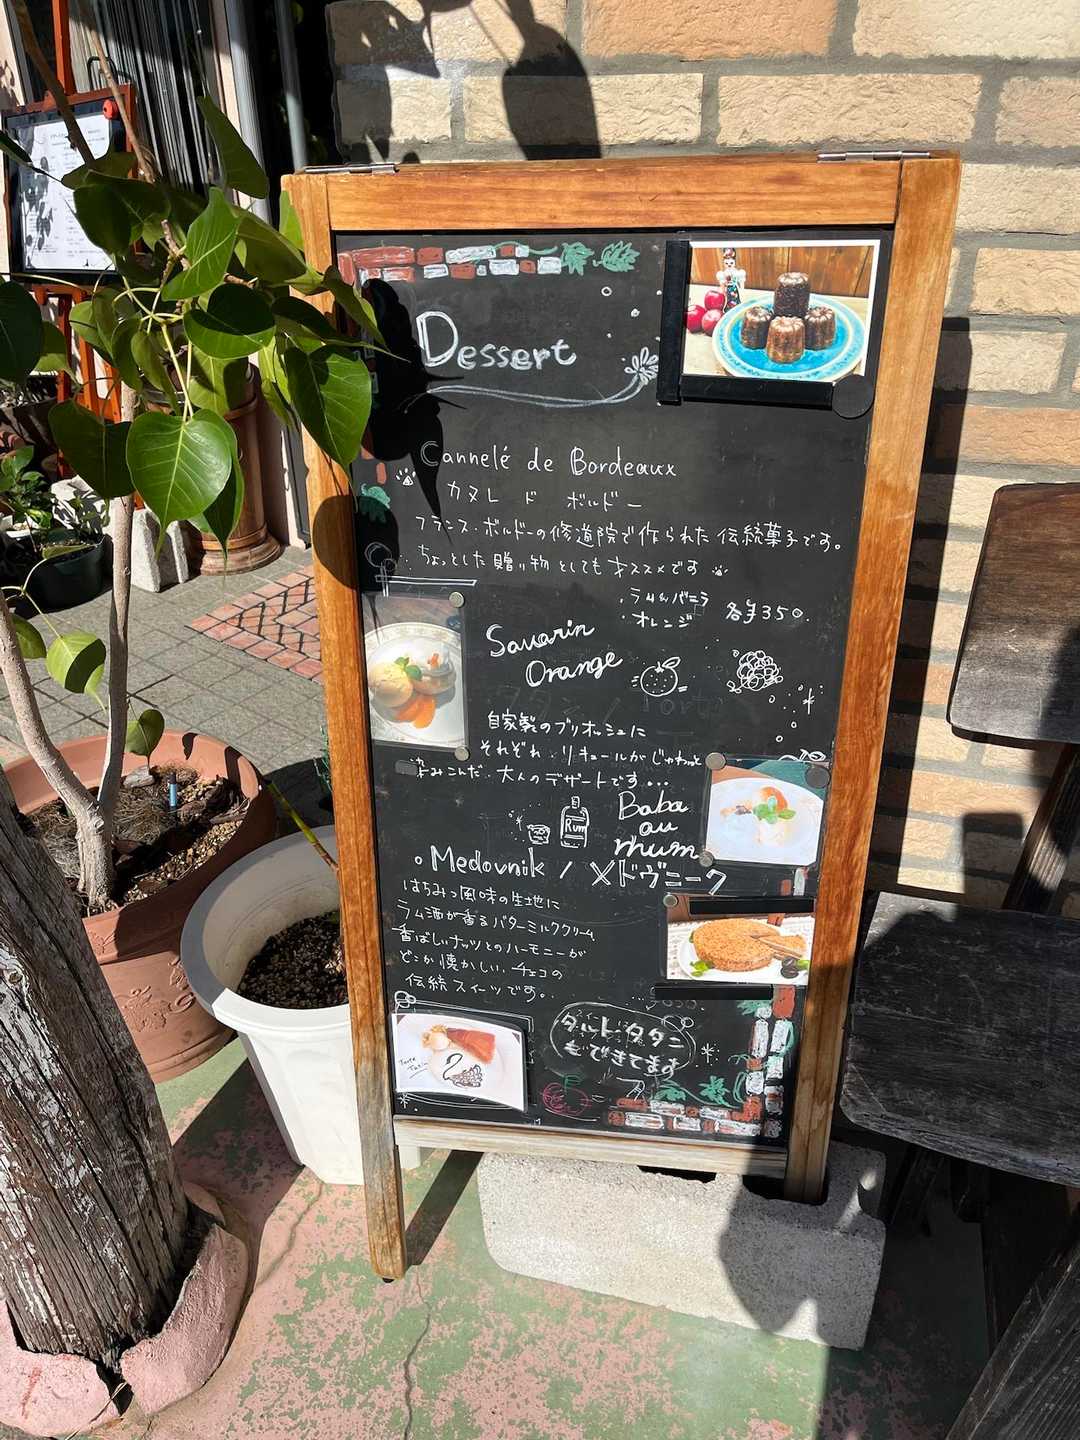 Dessert
Cannelé de Bordeaux
カヌレ ド ボルドー
フランス・ボルドーの修道院で作られた伝統菓子です。
ちょっとした贈り物としてもオススメです
・ラム&バニラ
・オレンジ
各¥350.
Savarin
Orange
自家製のブリオッシュに
それぞれ リキュールがじゅわっと
染みこんだ 大人のデザートです...
Rum
Baba
au
rhum
Medovnik / メドヴニーク
はちみつ風味の生地に
ラム酒が香るバターミルククリーム、
香ばしいナッツとのハーモニーが
どこか懐かしい、チェコの
伝統スイーツです。
Tarte
Tatin
タルトタタン
もできてます